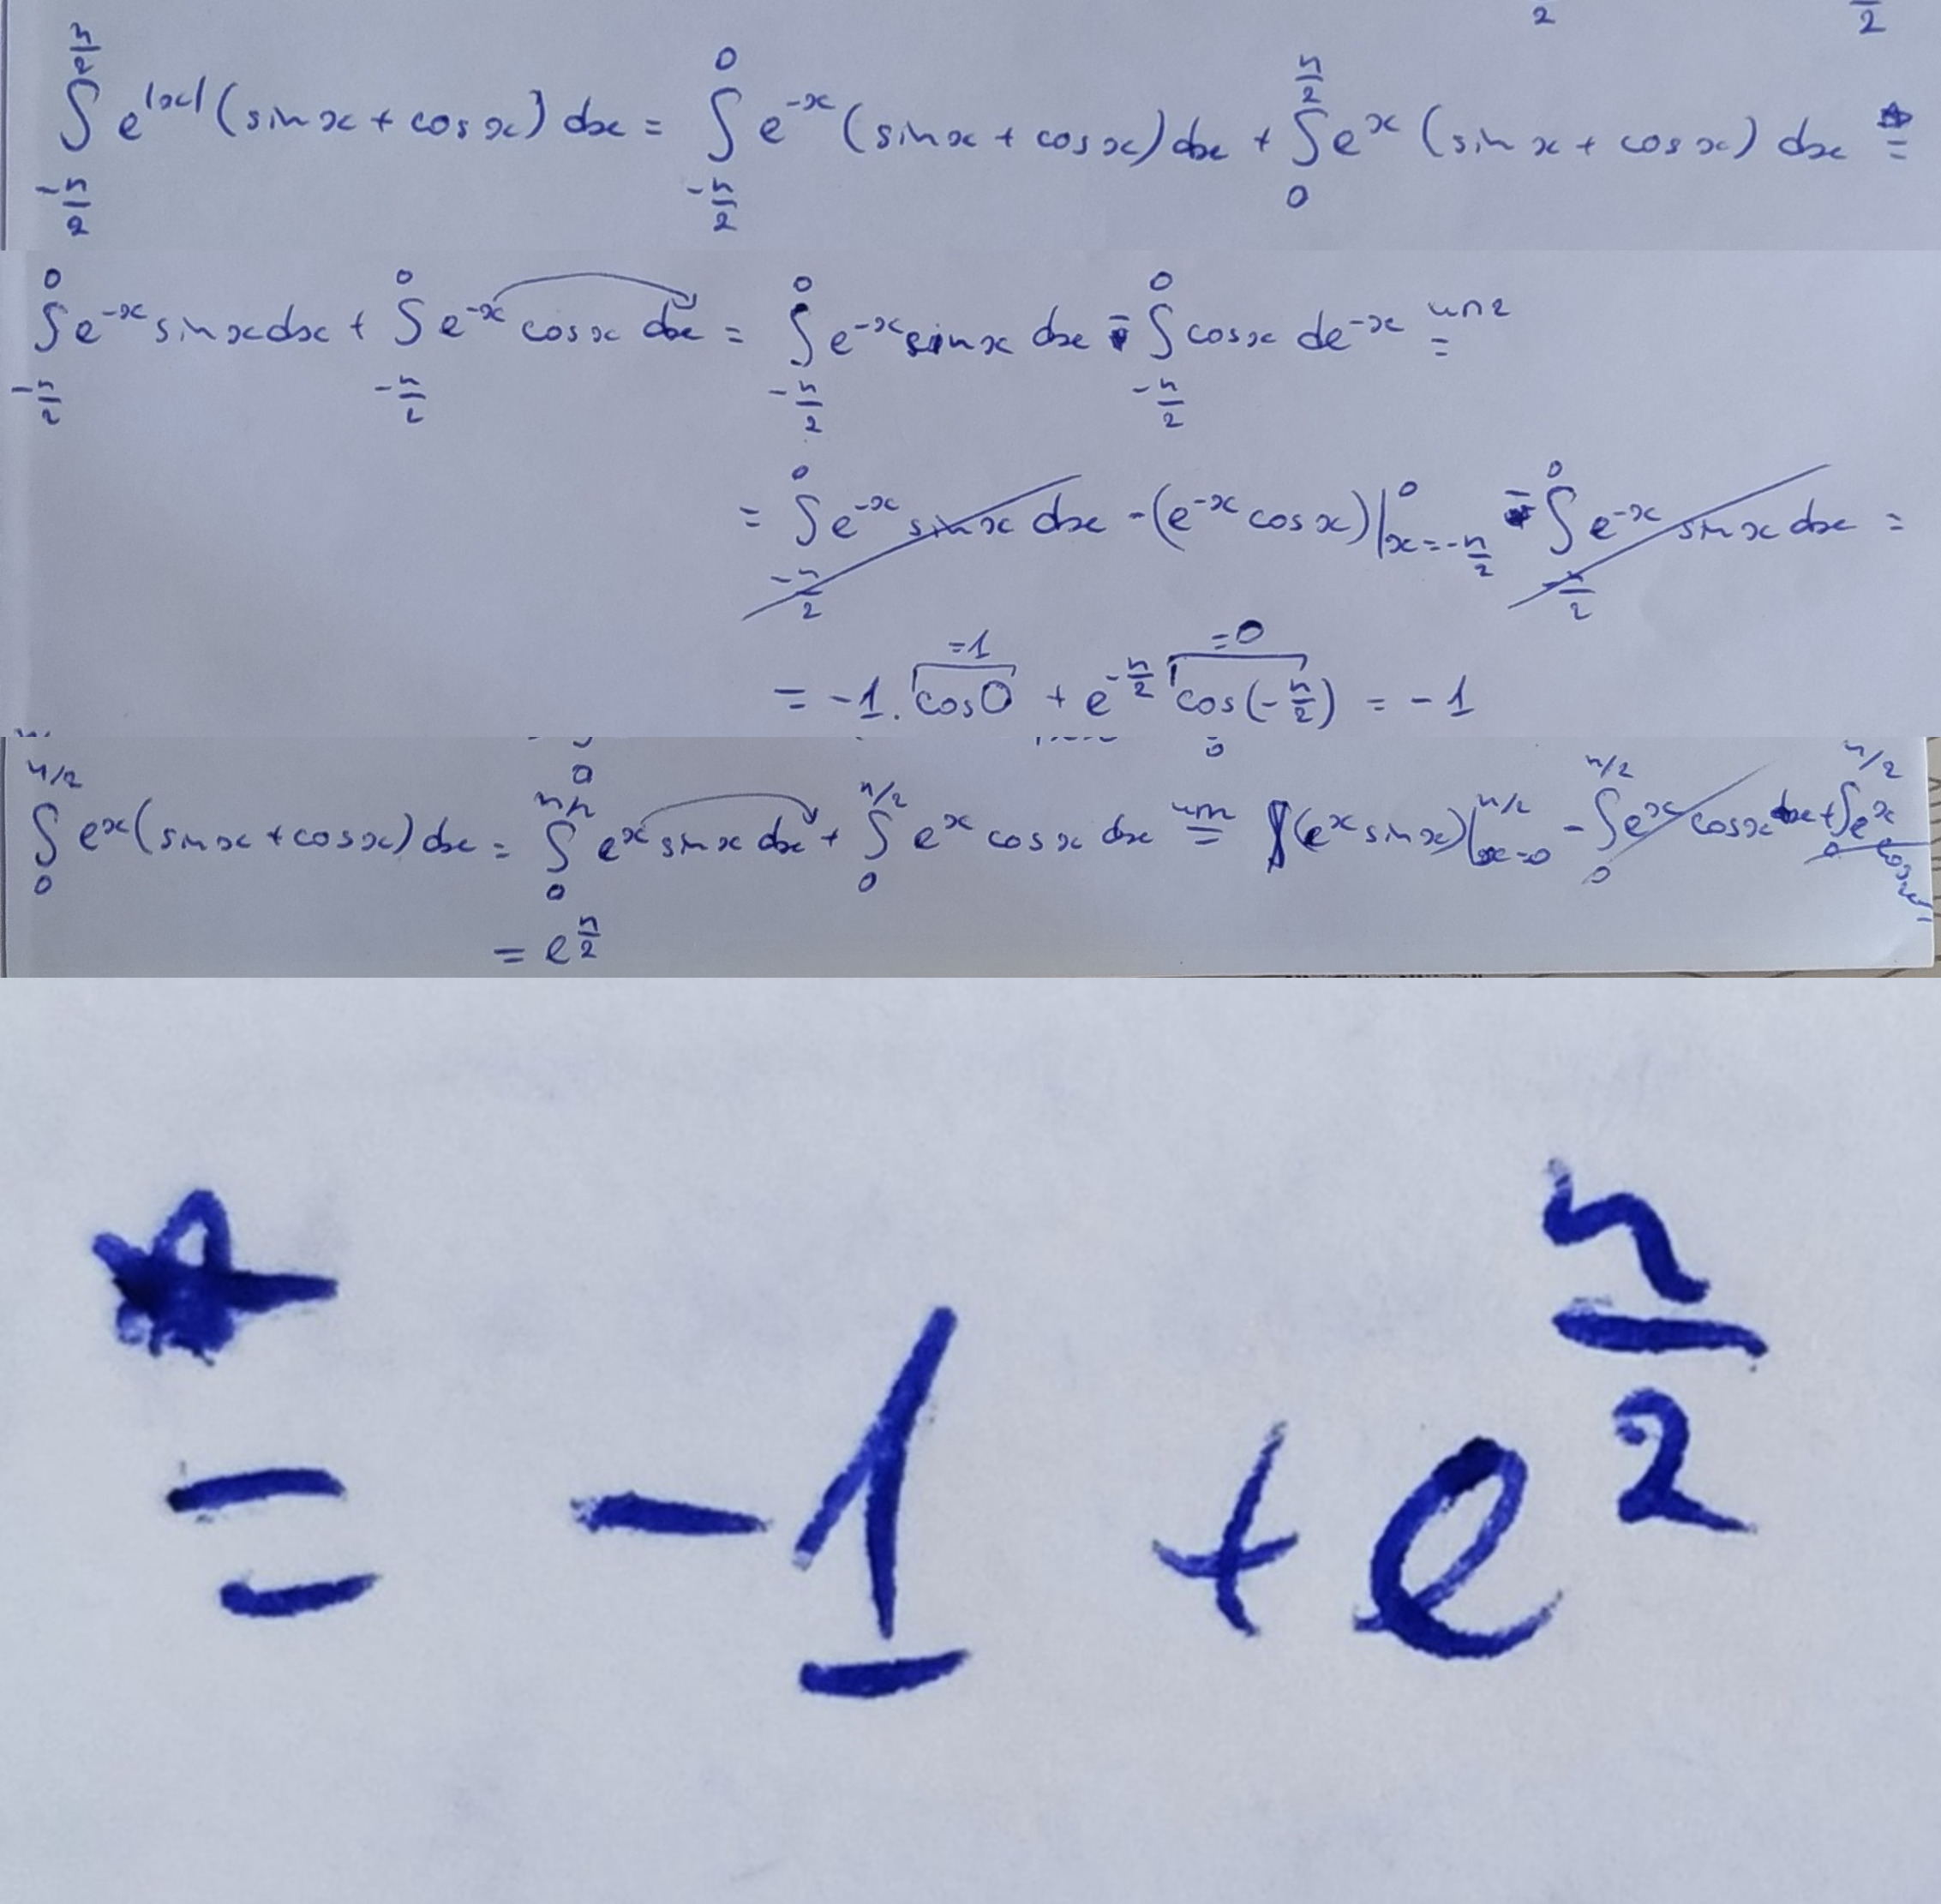 2 2
∫_{-π/2}^{π/2} e^{|x|} (sin x + cos x) dx = ∫_{-π/2}^{0} e^{-x} (sin x + cos x) dx + ∫_{0}^{π/2} e^{x} (sin x + cos x) dx ☆=
∫_{-π/2}^{0} e^{-x} sin x dx + ∫_{-π/2}^{0} e^{-x} cos x dx = ∫_{-π/2}^{0} e^{-x} sin x dx - ∫_{-π/2}^{0} cos x de^{-x} =
= ∫_{-π/2}^{0} e^{-x} sin x dx - (e^{-x} cos x)|_{x=-π/2}^{0} - ∫_{-π/2}^{0} e^{-x} sin x dx =
=1 =0
= -1 . cos 0 + e^{-π/2} cos(-π/2) = -1
∫_{0}^{π/2} e^{x} (sin x + cos x) dx = ∫_{0}^{π/2} e^{x} sin x dx + ∫_{0}^{π/2} e^{x} cos x dx = (e^{x} sin x)|_{x=0}^{π/2} - ∫_{0}^{π/2} e^{x} cos x dx + ∫_{0}^{π/2} e^{x} cos x =
= e^{π/2}
☆= -1 + e^{π/2}